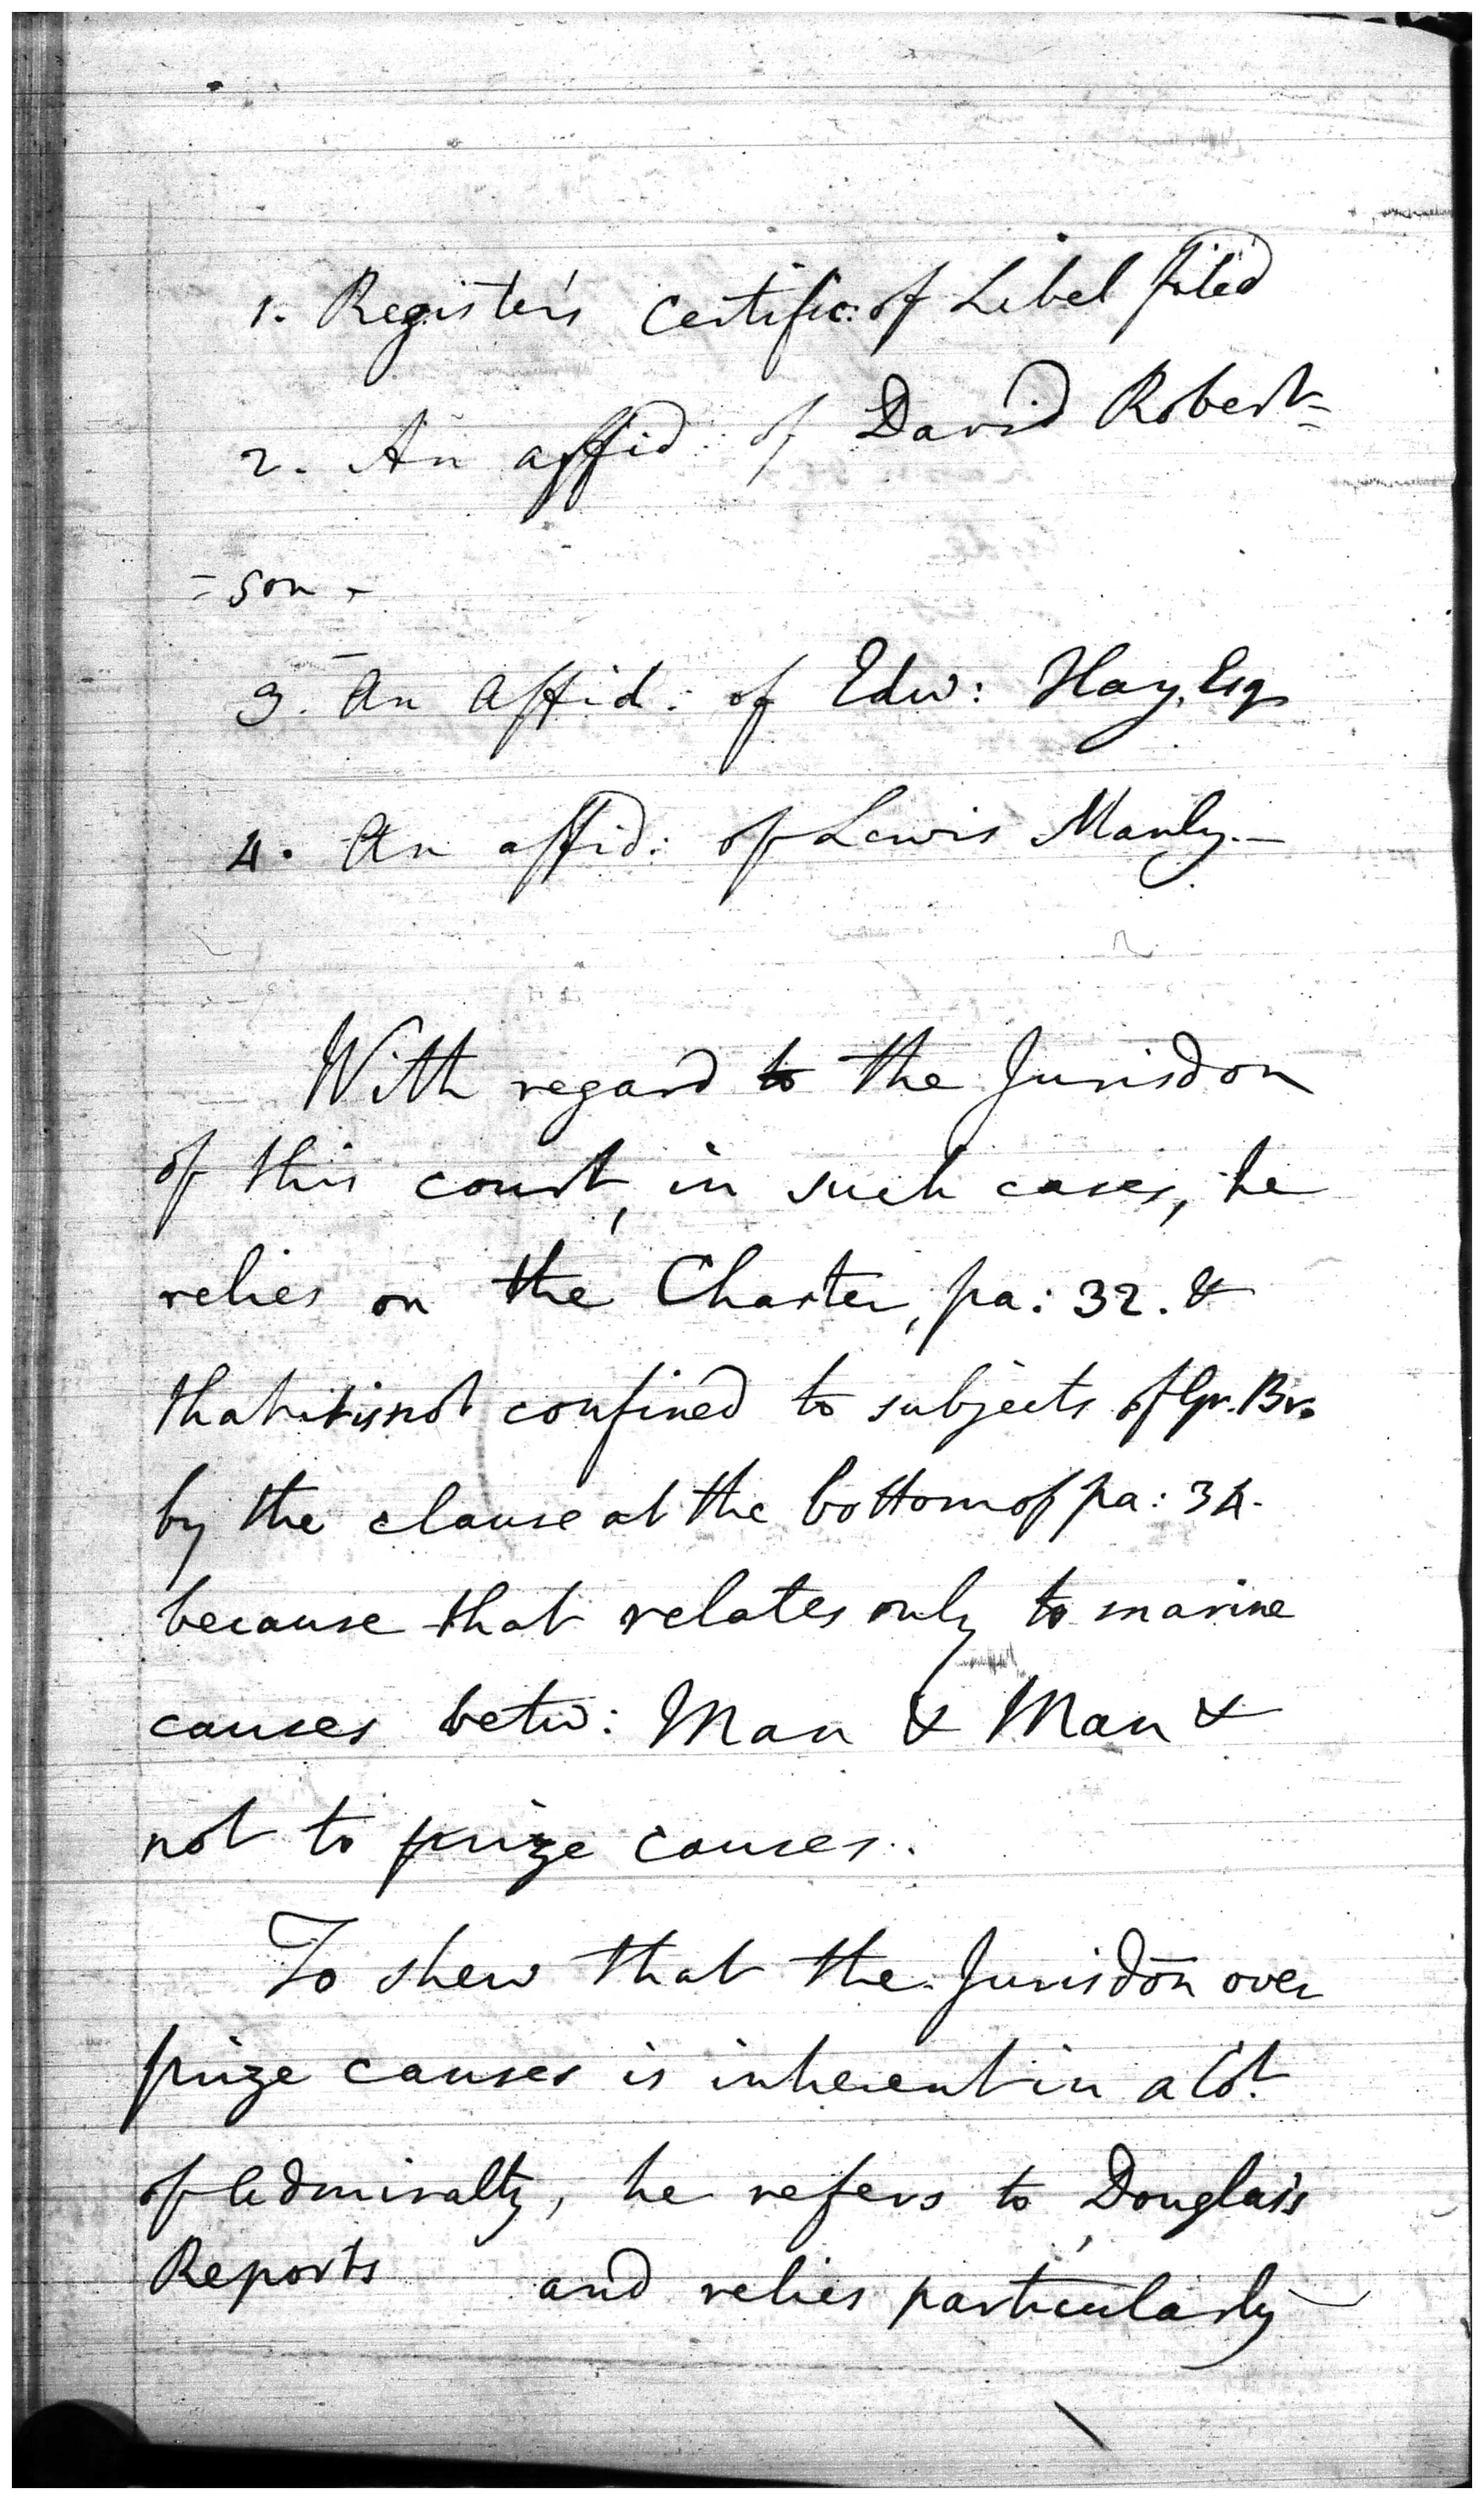 1. Register's Certific: of Libel filed
2. An affid: of David Robert=
=son.
3. An Affid: of Edw: Hay, Esqr
4. An affid: of Lewis Manly.—
With regard to the Jurisdon
of this court, in such cases, he
relies on the Charter, pa: 32. &
that it is not confined to subjects of Gr. Br.
by the clause at the bottom of pa: 34.
because that relates only to marine
causes betw: Man & Man &
not to prize causes.
To shew that the Jurisdon over
prize causes is inherent in a Ct.
of Admiralty, he refers to Douglas's
Reports and relies particularly